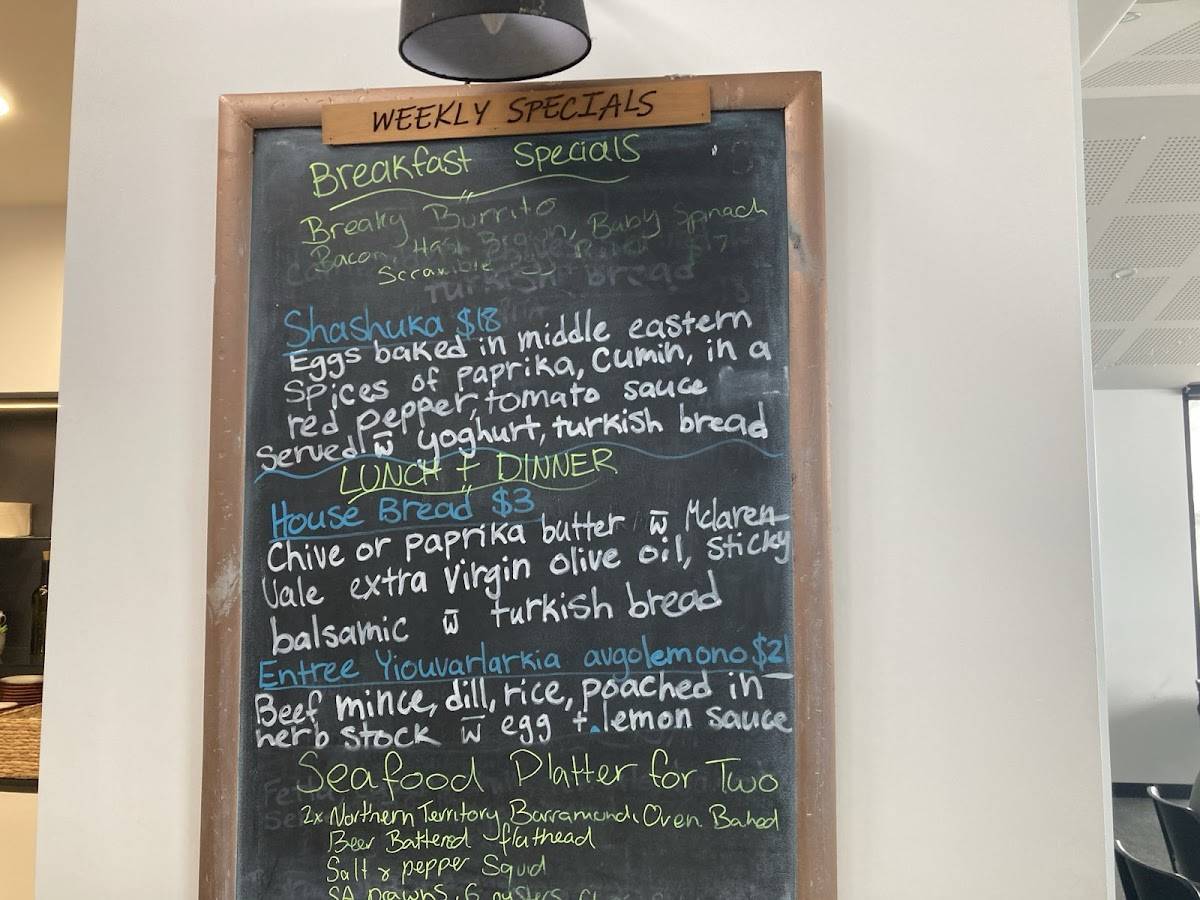 WEEKLY SPECIALS
Breakfast Specials
Breaky Burrito
Bacon, Hash Brown, Baby Spinach
Scramble $17
turkish bread
Shashuka $18
Eggs baked in middle eastern
spices of paprika, cumin, in a
red pepper, tomato sauce
served w̅ yoghurt, turkish bread
LUNCH + DINNER
House Bread $3
Chive or paprika butter w̅ Mclaren
Vale extra virgin olive oil, sticky
balsamic w̅ turkish bread
Entree Yiouvarlarkia avgolemono $21
Beef mince, dill, rice, poached in
herb stock w̅ egg + lemon sauce
Seafood Platter for Two
2x Northern Territory Barramundi Oven Baked
Beer Battered flathead
Salt & pepper Squid
SA prawns, 6 oysters